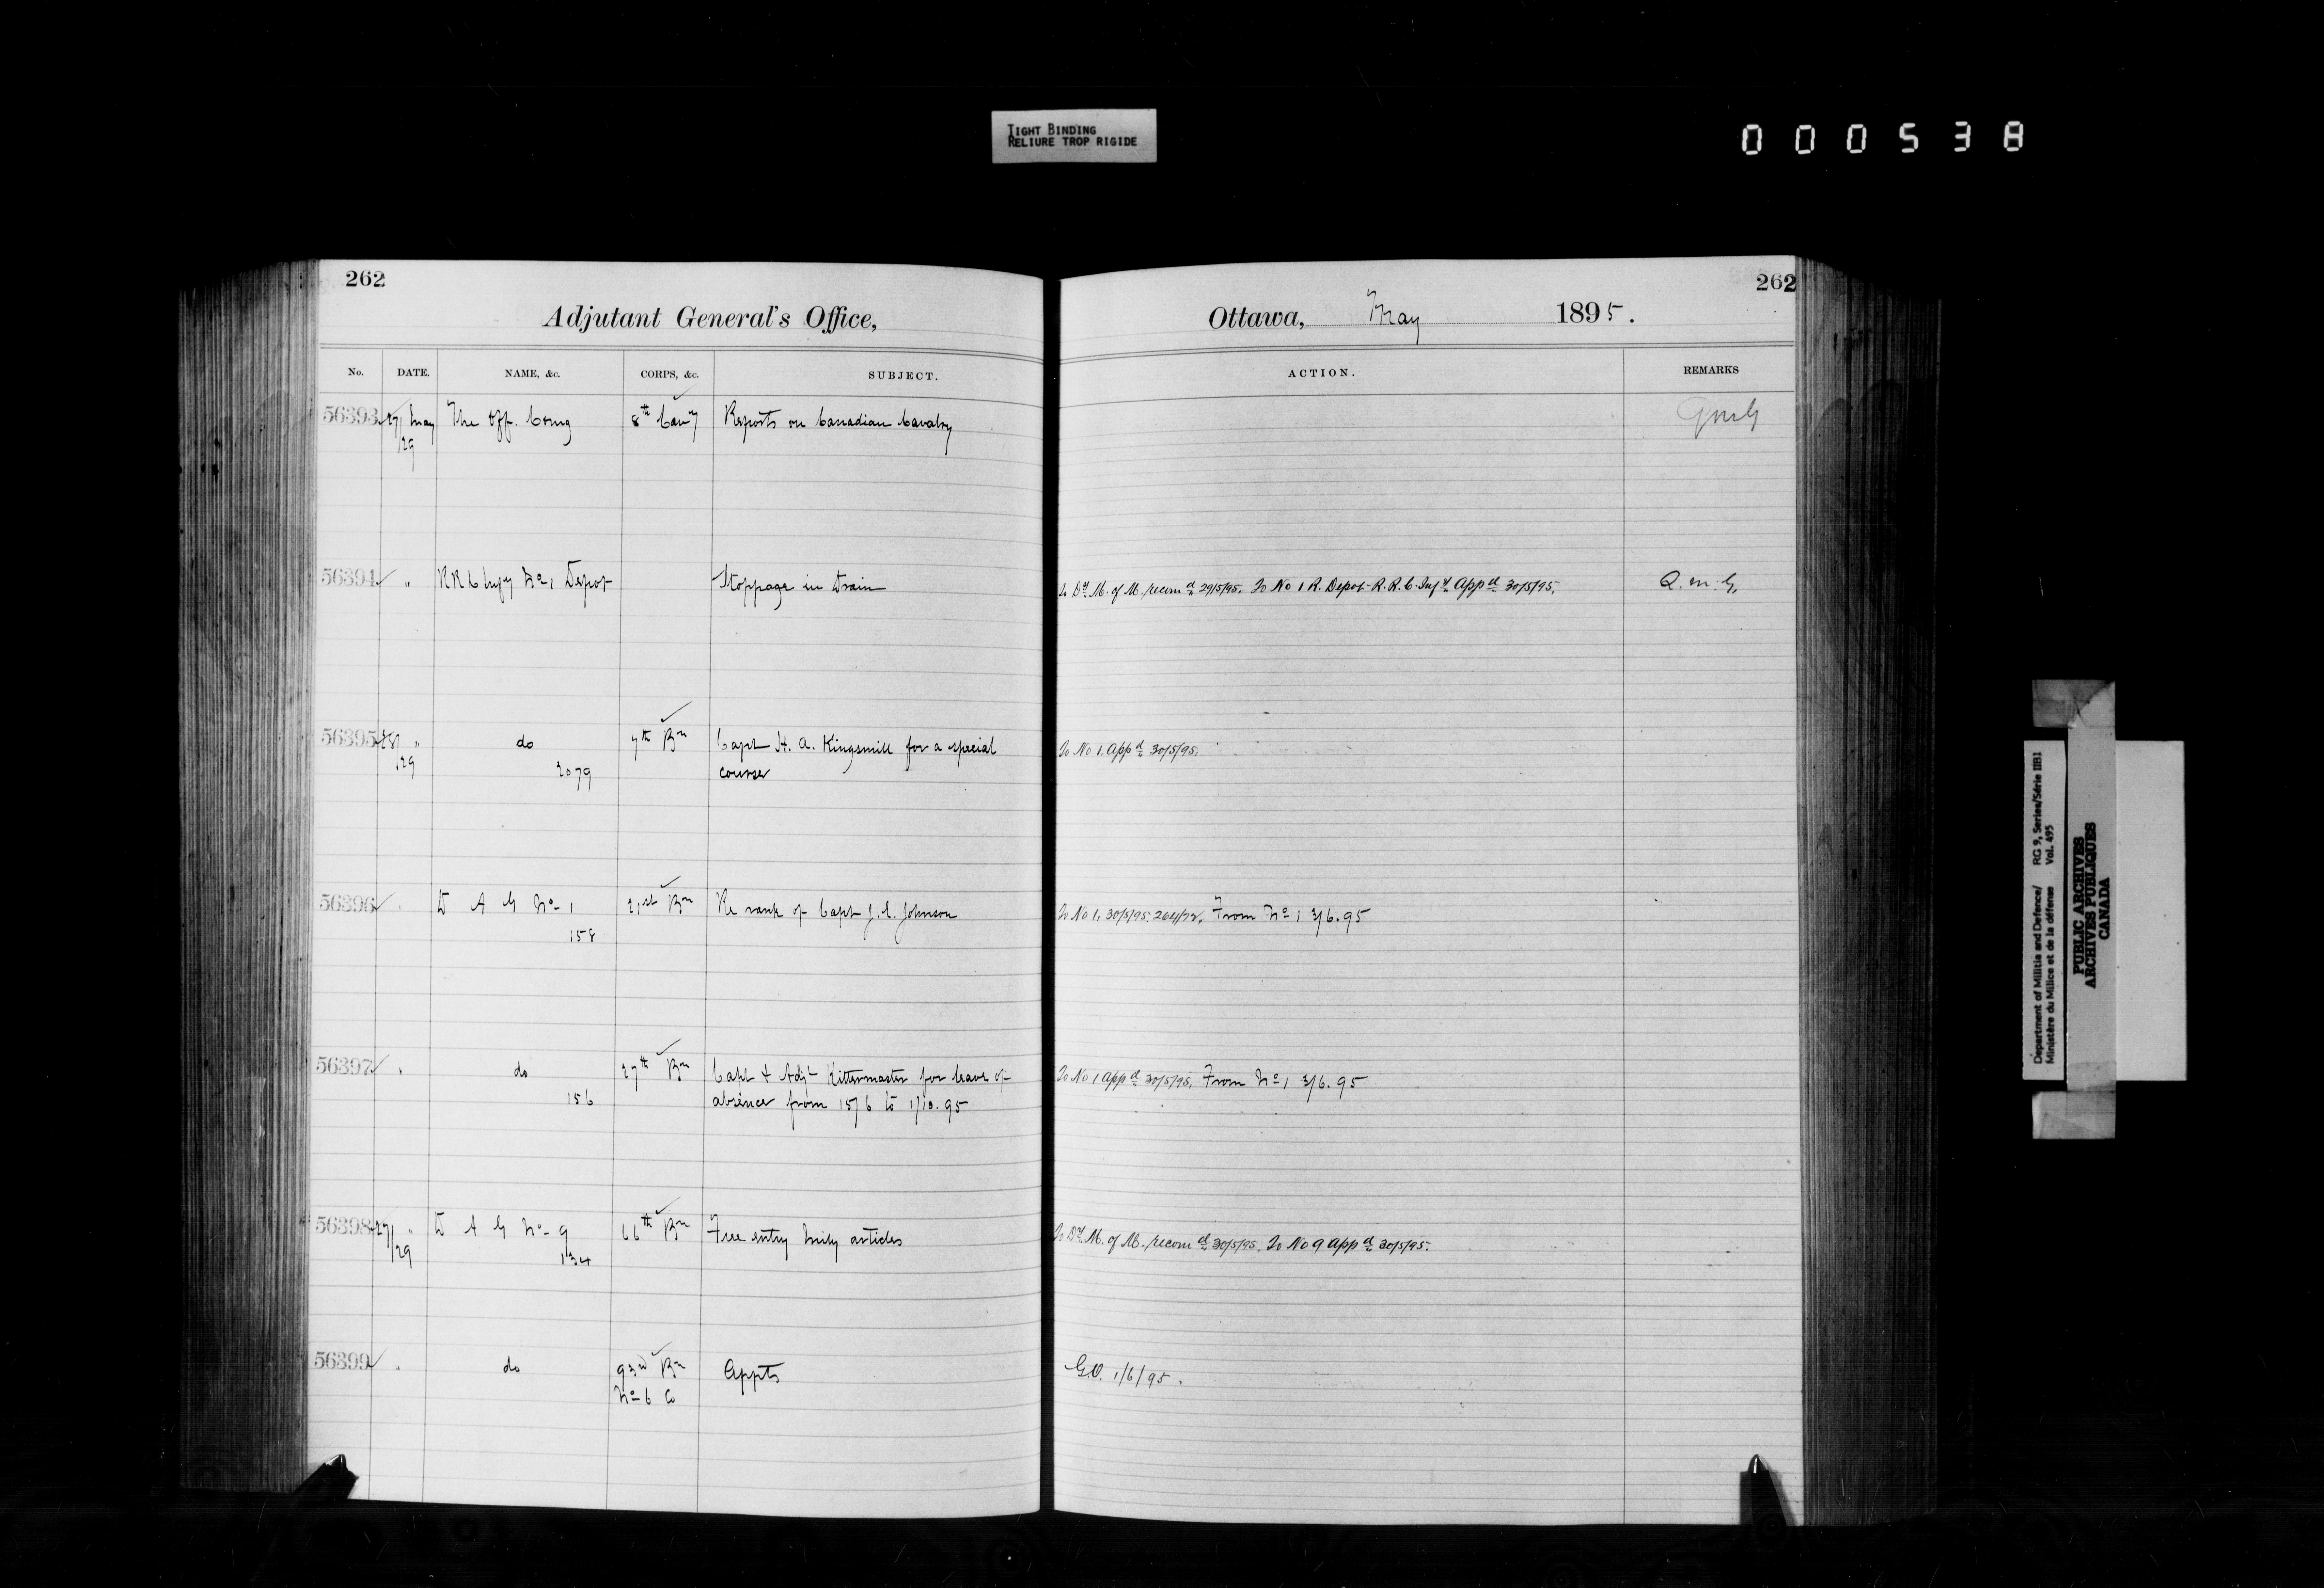 TIGHT BINDING
RELIURE TROP RIGIDE
000538
262
Adjutant General's Office,
No. DATE. NAME, &c. CORPS, &c. SUBJECT.
56393 27/May The Off. Comg 8th Cavy Reports on Canadian Cavalry
/29
56394 " RRC Infy No 1 Depot Stoppage in Drain
56395 28/ " do 7th Bn Capt H. A. Kingsmill for a special
/29 2079 course
56396 D A G No 1 21st Bn Re rank of Capt J. E. Johnson
158
56397 " do 27th Bn Capt & Adjt Kittermaster for leave of
156 absence from 15/6 to 1/10.95
56398 27/ " D A G No 9 66th Bn Free entry Mily articles
/29 134
56399 " do 93rd Bn Appts
No 6 Co
262
Ottawa, May 1895.
ACTION. REMARKS
QMG
To Dy. M. of M. recomd 29/5/95. To No 1 R. Depot R.R.C. Infy. Appd 30/5/95. Q.M.G.
To No 1. Appd 30/5/95.
To No 1, 30/5/95. From No 1 3/6.95
To No 1 Appd 30/5/95. From No 1 3/6.95
To Dy. M. of M. recomd 30/5/95. To No 9 Appd 30/5/95.
G.O. 1/6/95.
Department of Militia and Defence/ RG 9, Series/Série IIB1
Ministère du Milice et de la défense Vol. 495
PUBLIC ARCHIVES
ARCHIVES PUBLIQUES
CANADA